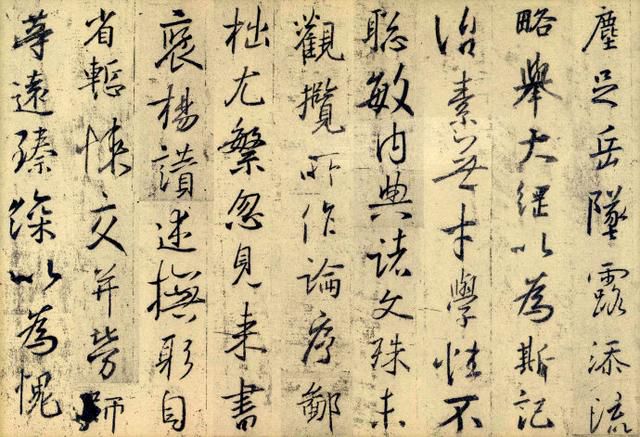 塵足岳墜露添流
略舉大綱以為斯記
治素無才學性不
聰敏內典諸文殊未
觀攬所作論序鄙
拙尤繁忽見來書
褒揚讚述撫躬自
省慙悚交并勞師
等遠臻深以為愧